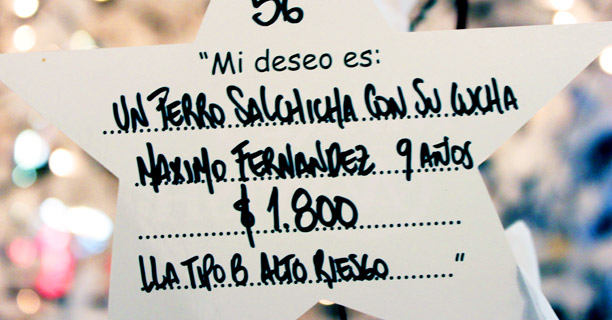 56
"Mi deseo es:
UN PERRO SALCHICHA CON SU CUCHA
MAXIMO FERNANDEZ 9 AÑOS
$ 1.800
LLA TIPO B ALTO RIESGO"